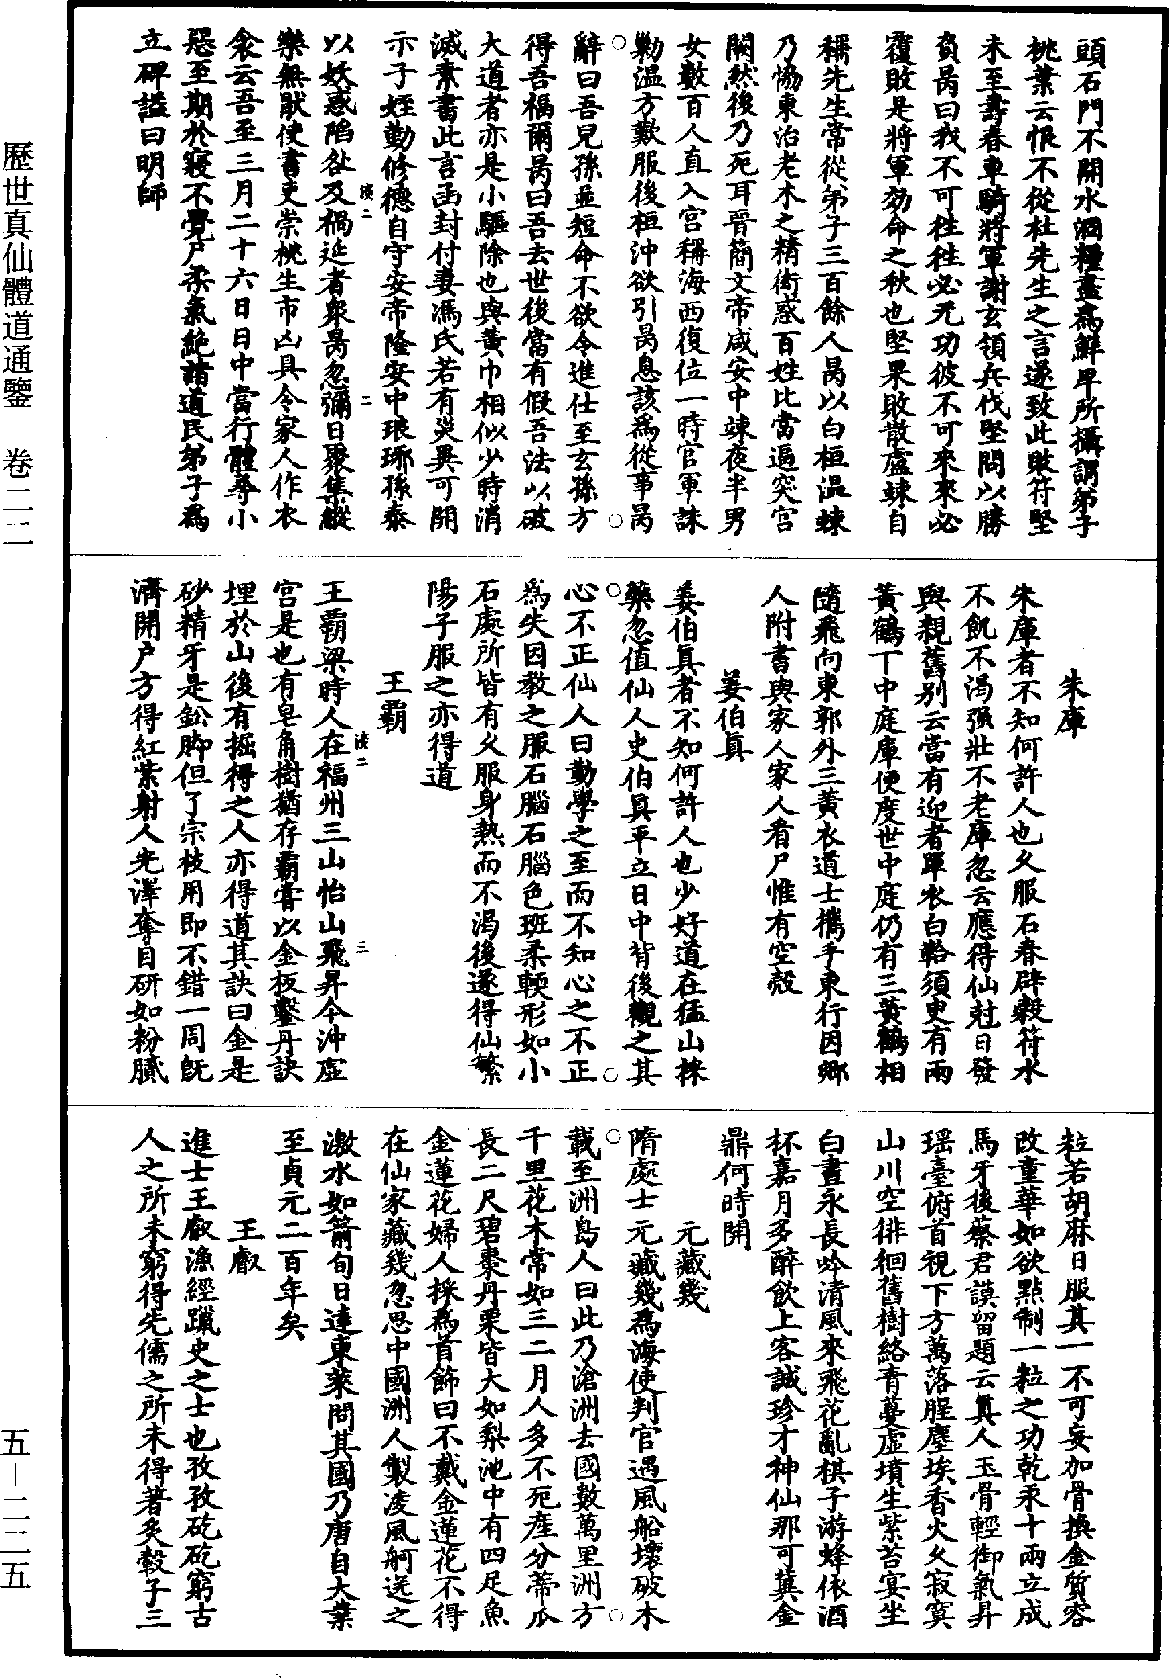 歷世真仙體道通鑒　卷二二
五—二二五
頭石門不開水涸糧盡為鮮卑所攝謂弟子
桃葉云恨不從杜先生之言遂致此敗苻堅
未至壽春車騎將軍謝玄領兵伐堅問以勝
負昺曰我不可往往必无功彼不可來來必
覆敗是將軍効命之秋也堅果敗散盧竦自
稱先生常從弟子三百餘人昺以白桓温竦
乃協東治老木之精衒惑百姓比當逼突宮
闕然後乃死耳晉簡文帝咸安中竦夜半男
女數百人直入宮稱海西復位一時官軍誅
勦温方歎服後桓沖欲引昺息該為從事昺
辭曰吾兒孫並短命不欲令進仕至玄孫方
得吾福爾昺曰吾去世後當有假吾法以破
大道者亦是小驅除也與黃巾相似少時消
滅素書此言函封付妻馮氏若有災異可開
示子姪勤修德自守安帝隆安中琅琊孫泰
以妖惑陷咎及禍延者衆昺忽彌日聚集縱
樂無猒使書吏崇桃生市凶具令家人作衣
衾云吾至三月二十六日日中當行體尋小
惡至期於寢不覺尸柔氣絶諸道民弟子為
立碑謚曰明師
朱庫
朱庫者不知何許人也久服石春辟穀符水
不飢不渴強壯不老庫忽云應得仙尅日發
與親舊别云當有迎者單衣白幍須臾有兩
黃鶴下中庭庫便度世中庭仍有三黃鶴相
隨飛向東郭外三黃衣道士携手東行因鄉
人附書與家人家人看尸惟有空殻
姜伯真
姜伯真者不知何許人也少好道在猛山採
藥忽值仙人史伯真平立日中背後觀之其
心不正仙人曰勤學之至而不知心之不正
為失因教之服石腦石腦色班柔輭形如小
石處所皆有久服身熱而不渴後遂得仙繁
陽子服之亦得道
王霸
王霸梁時人在福州三山怡山飛昇今沖虛
宮是也有皂角樹猶存霸嘗以金板鏨丹訣
埋於山後有掘得之人亦得道其訣曰金是
砂精牙是鈆脚但了宗枝用即不錯一周旣
濟開户方得紅紫射人光澤奪目研如粉膩
粒若胡麻日服其一不可妄加骨換金質容
改童華如欲點制一粒之功乾汞十兩立成
馬牙後蔡君謨留題云真人玉骨輕御氣昇
瑶臺俯首視下方萬落腥塵埃香火久寂寞
山川空徘徊舊樹絡青蔓虛墳生紫苔宴坐
白晝永長吟清風來飛花亂棋子游蜂依酒
杯嘉月多醉飲上客誠珍才神仙那可冀金
鼎何時開
元藏幾
隋處士元藏幾為海使判官遇風船壞破木
載至洲島人曰此乃滄洲去國數萬里洲方
千里花木常如三二月人多不死產分蔕瓜
長二尺碧棗丹栗皆大如梨池中有四足魚
金蓮花婦人採為首飾曰不戴金蓮花不得
在仙家藏幾忽思中國洲人製凌風舸送之
激水如箭旬日達東萊問其國乃唐自大業
至貞元二百年矣
王叡
進士王叡漁經獵史之士也孜孜矻矻窮古
人之所未窮得先儒之所未得著炙轂子三